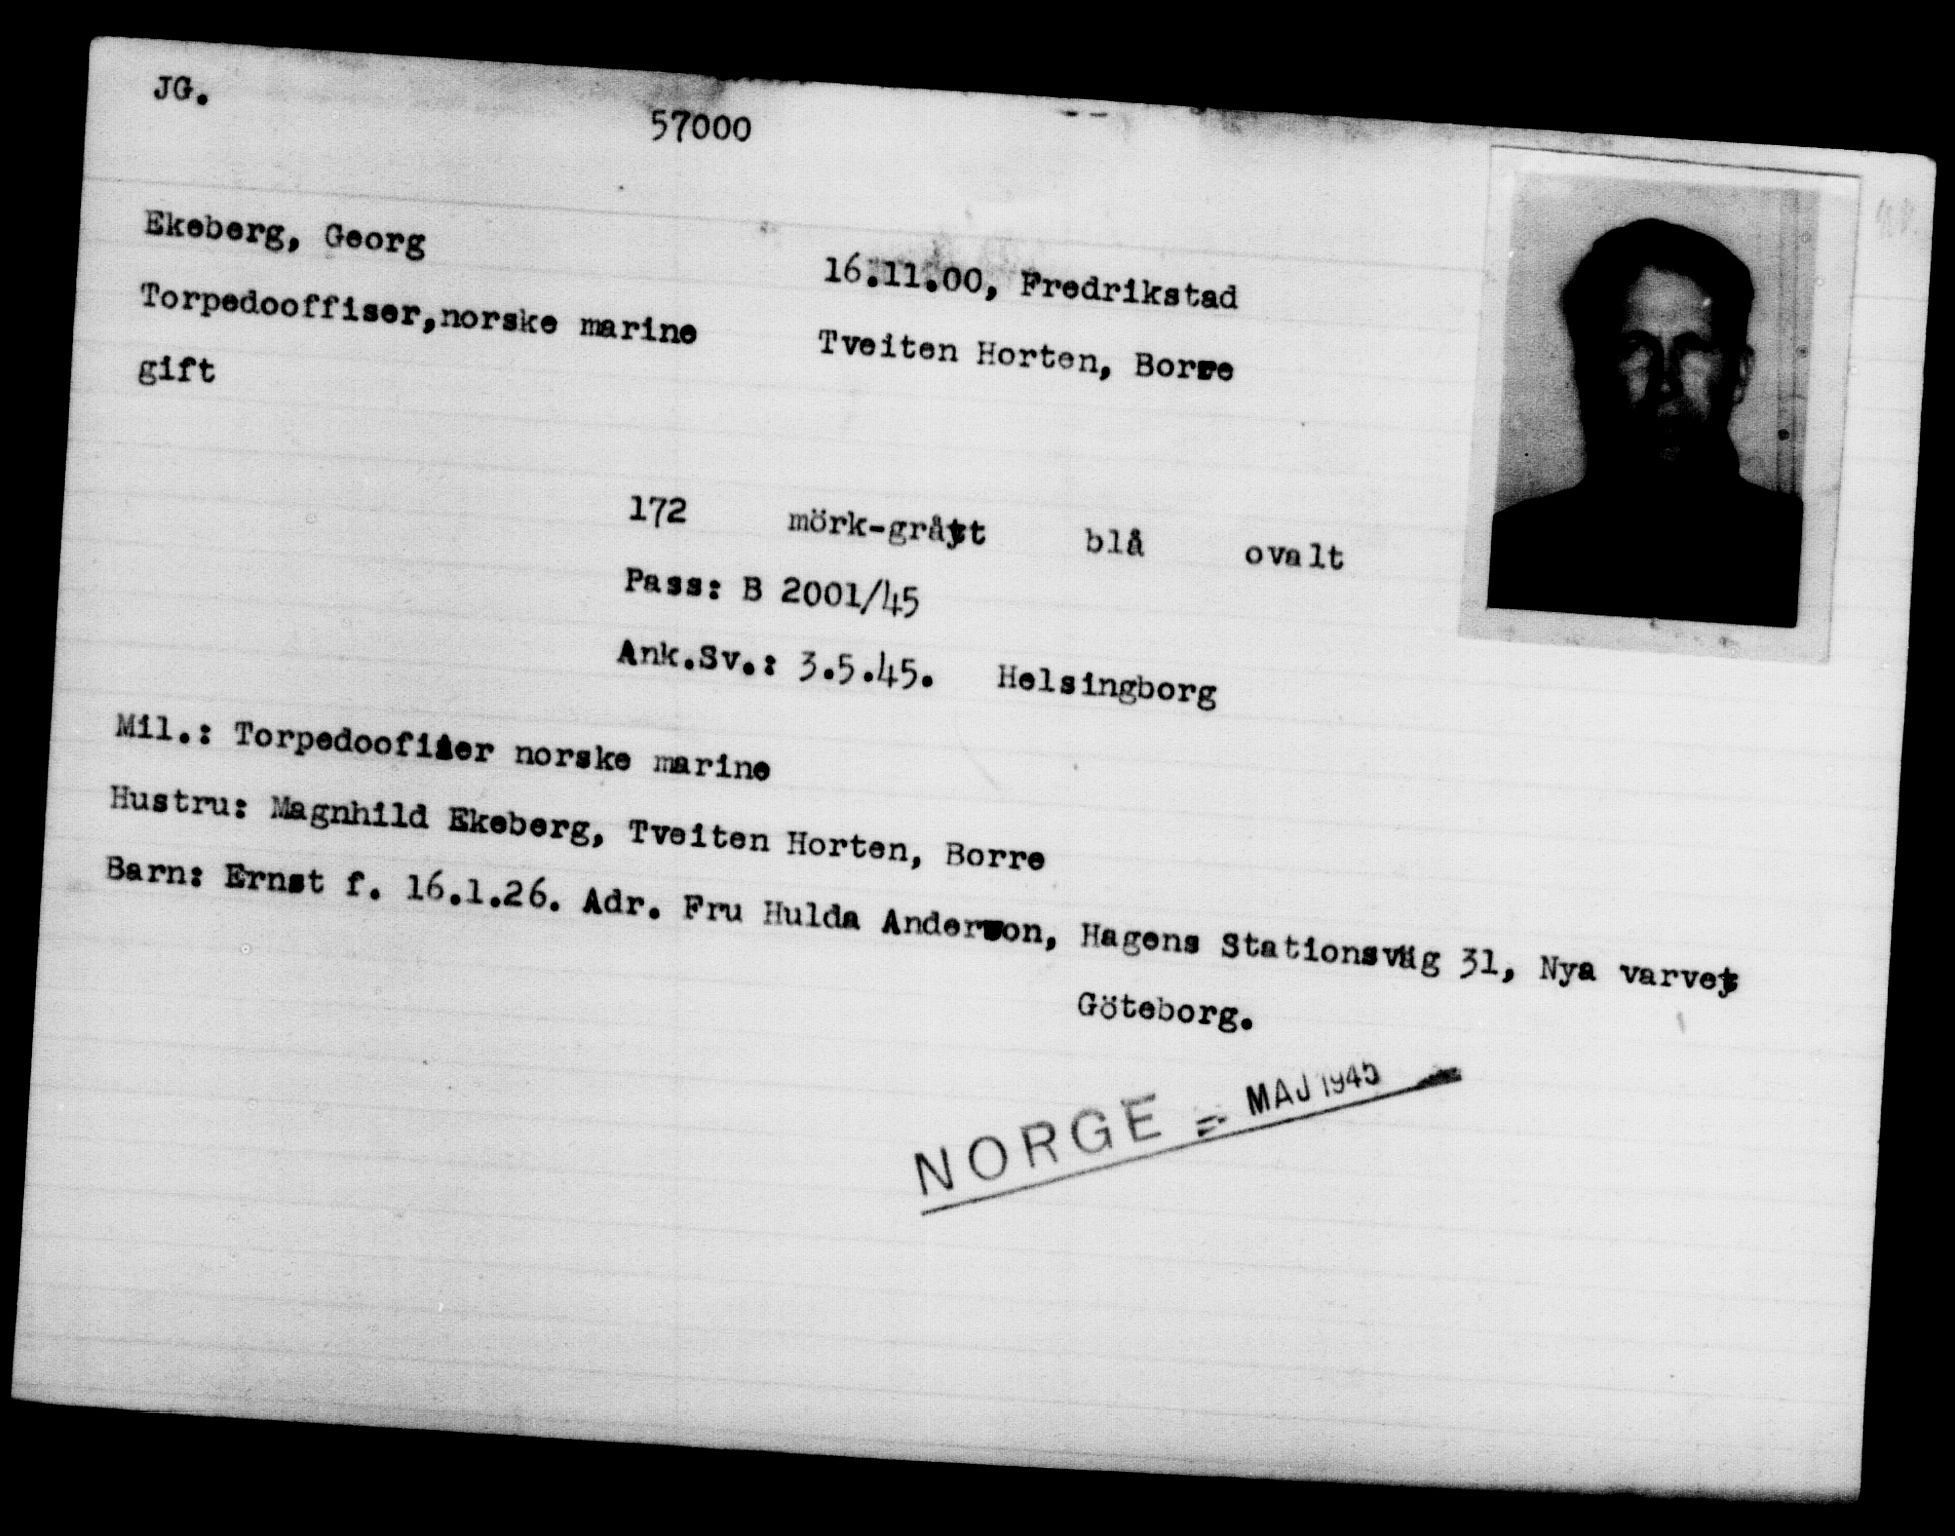 JG.
57000
Ekeberg, Georg
16.11.00, Fredrikstad
Torpedooffiser,norske marine
Tveiten Horten, Borre
gift
172 mörk-grått blå ovalt
Pass: B 2001/45
Ank.Sv.: 3.5.45. Helsingborg
Mil.: Torpedoofiser norske marine
Hustru: Magnhild Ekeberg, Tveiten Horten, Borre
Barn: Ernst f. 16.1.26. Adr. Fru Hulda Anderson, Hagens Stationsväg 31, Nya varvet
Göteborg.
NORGE = MAJ 1945